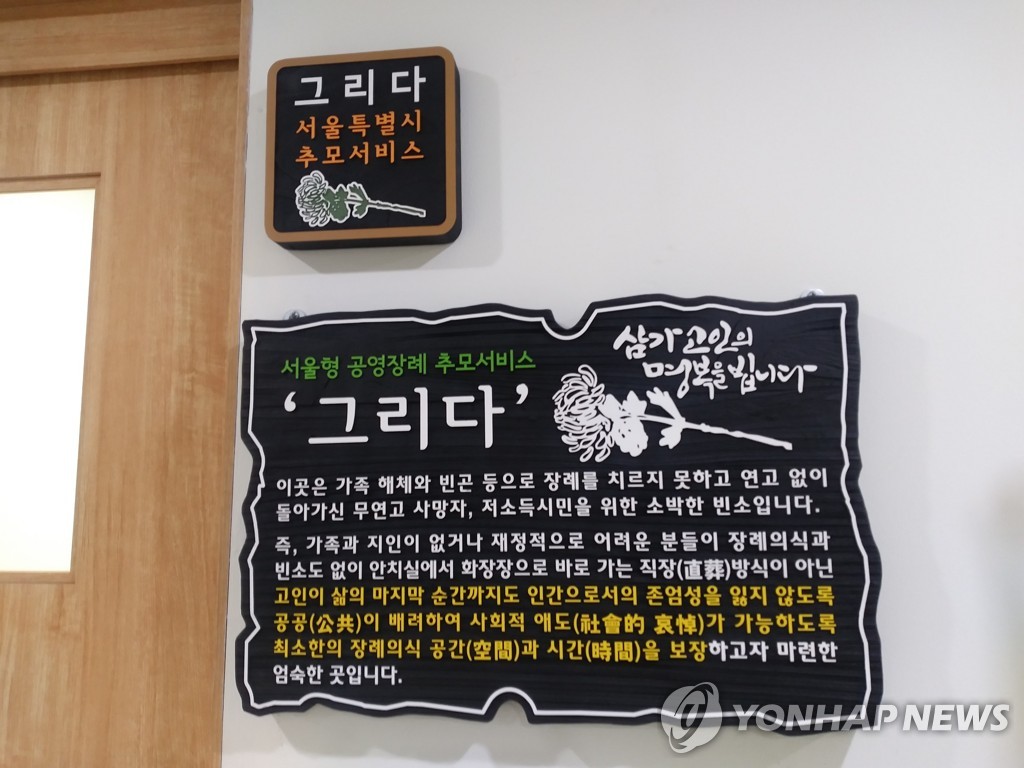 그리다
서울특별시
추모서비스
삼가 고인의
명복을 빕니다
서울형 공영장례 추모서비스
‘그리다’
이곳은 가족 해체와 빈곤 등으로 장례를 치르지 못하고 연고 없이
돌아가신 무연고 사망자, 저소득시민을 위한 소박한 빈소입니다.
즉, 가족과 지인이 없거나 재정적으로 어려운 분들이 장례의식과
빈소도 없이 안치실에서 화장장으로 바로 가는 직장(直葬)방식이 아닌
고인이 삶의 마지막 순간까지도 인간으로서의 존엄성을 잃지 않도록
공공(公共)이 배려하여 사회적 애도(社會的 哀悼)가 가능하도록
최소한의 장례의식 공간(空間)과 시간(時間)을 보장하고자 마련한
엄숙한 곳입니다.
YONHAP NEWS